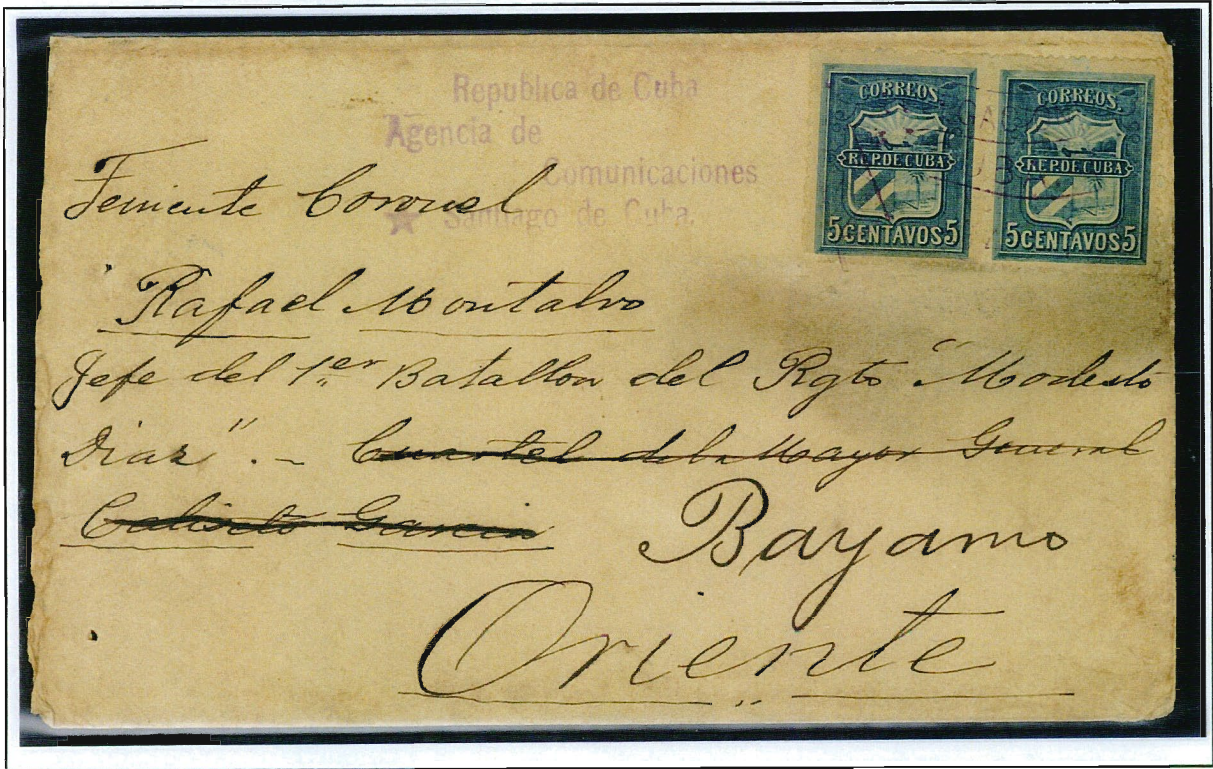 Republica de Cuba
Agencia de
Comunicaciones
Santiago de Cuba.
CORREOS.
REP.DE CUBA
5 CENTAVOS 5
CORREOS.
REP.DE CUBA
5 CENTAVOS 5
Teniente Coronel
Rafael Montalvo
Jefe del 1er Batallon del Rgto "Modesto
Diaz". - Cuartel del Mayor General
Calisto Garcia
Bayamo
Oriente